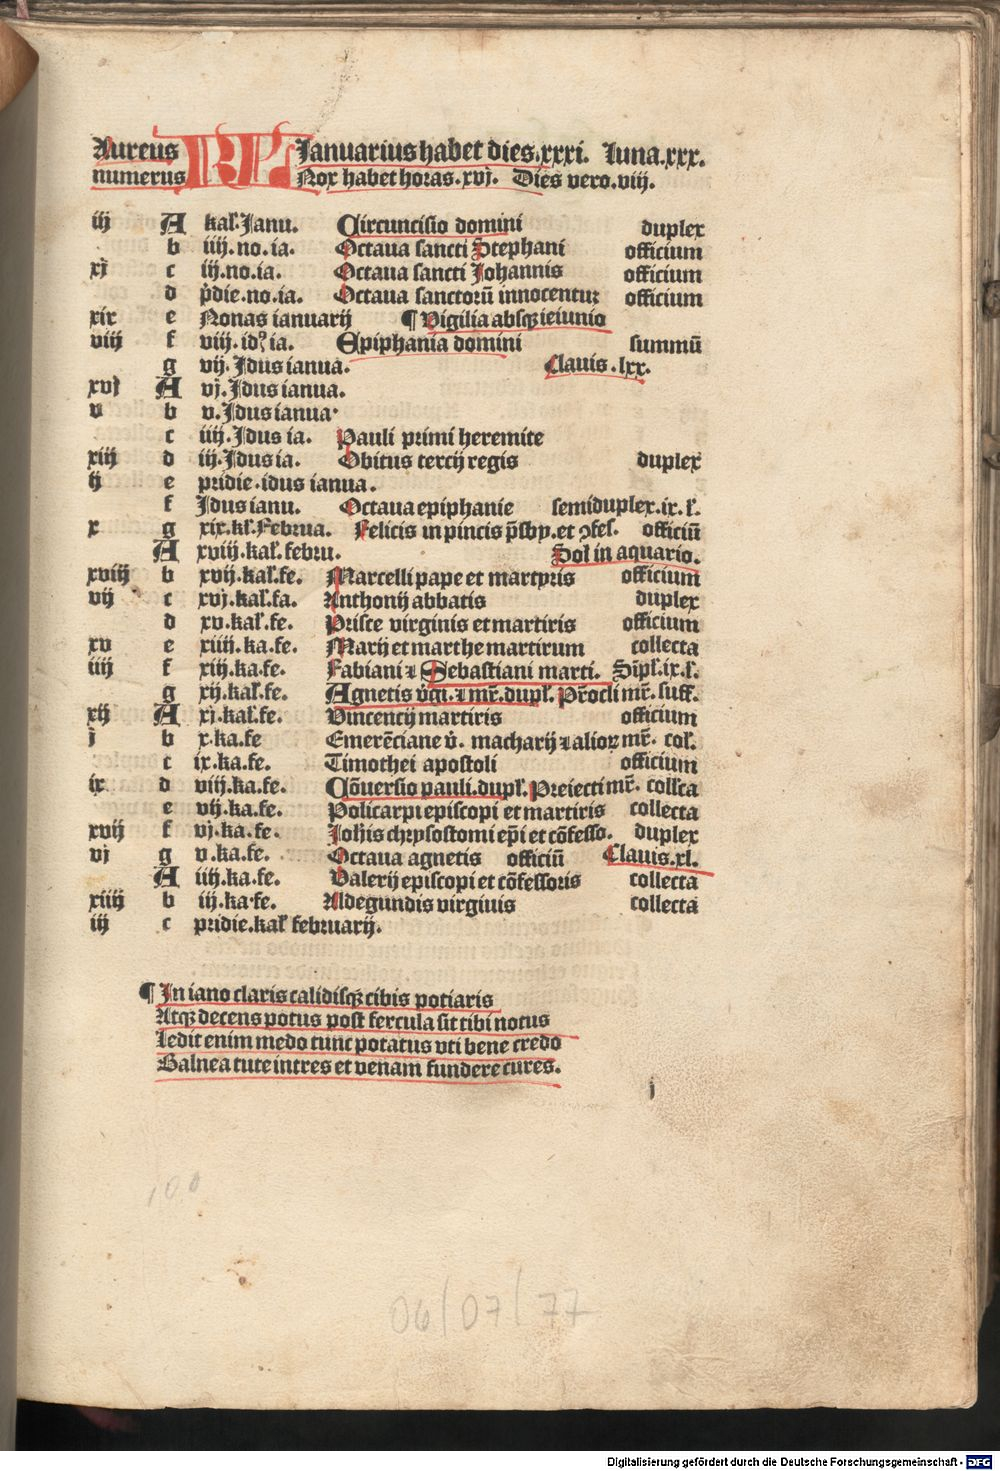 Aureus KL Januarius habet dies.xxxi. Luna.xxx.
numerus Nox habet horas.xvj. Dies vero.viij.
iij A kal̉.Janu. Circuncisio domini duplex
b iiij.no.ia. Octaua sancti Stephani officium
xj c iij.no.ia. Octaua sancti Johannis officium
d p̄die.no.ia. Octaua sanctorū innocentuꝝ officium
xix e Nonas ianuarij ¶ Vigilia absqꝫ ieiunio
viij f viij.idꝰ.ia. Epiphania domini summū
g vij.Jdus ianua. Clauis.lxx.
xvj A vj.Jdus ianua.
v b v.Jdus ianua.
c iiij.Jdus ia. Pauli primi heremite
xiij d iij.Jdus ia. Obitus tercij regis duplex
ij e pridie.idus ianua.
f Jdus ianu. Octaua epiphanie semiduplex.ix.l̉.
x g xix.kl̉.Februa. Felicis in pincis p̄sby.et ꝯfes̉. officiū
A xviij.kal̉.febru. Sol in aquario.
xviij b xvij.kal̉.fe. Marcelli pape et martyris officium
vij c xvj.kal̉.fa. Anthonij abbatis duplex
d xv.kal̉.fe. Prisce virginis et martiris officium
xv e xiiij.ka.fe. Marij et marthe martirum collecta
iiij f xiij.ka.fe. Fabiani ⁊ Sebastiani marti. Sīpl̉.ix.l̉.
g xij.kal̉.fe. Agnetis v̄gi.⁊ mr̄.dupl̉. Pr̄ocli mr̄.suff.
xij A xj.kal̉.fe. Vincencij martiris officium
j b x.ka.fe Emerēciane v̄. macharij ⁊ alioꝝ mr̄. col̉.
c ix.ka.fe. Timothei apostoli officium
ix d viij.ka.fe. Cōuersio pauli.dupl̉. Preiecti mr̄. coll̉cta
e vij.ka.fe. Policarpi episcopi et martiris collecta
xvij f vj.ka.fe. Joh̄is chrysostomi ep̄i et cōfesso. duplex
vj g v.ka.fe. Octaua agnetis officiū Clauis.xl.
A iiij.ka.fe. Valerij episcopi et cōfessoris collecta
xiiij b iij.ka.fe. Aldegundis virginis collecta
iij c pridie.kal̉ februarij.
¶ In iano claris calidisqꝫ cibis potiaris
Atqꝫ decens potus post fercula sit tibi notus
Ledit enim medo tunc potatus vti bene credo
Balnea tute intres et venam fundere cures.
j
100
06/07/77
Digitalisierung gefördert durch die Deutsche Forschungsgemeinschaft - DFG